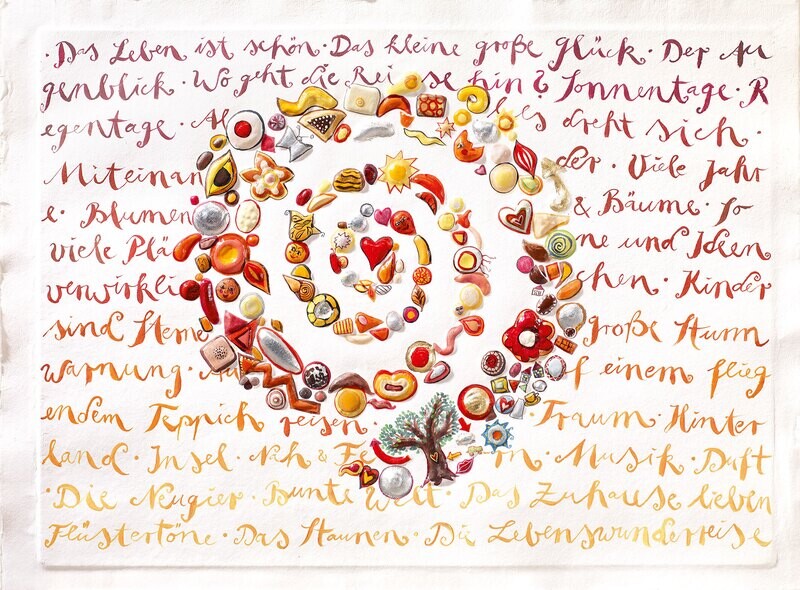 · Das Leben ist schön · Das kleine große Glück · Der Au
genblick · Wo geht die Rei se hin? Sonnentage · R
egentage · Al les dreht sich ·
Miteinan der · Viele Jahr
e · Blumen & Bäume · So
viele Plä ne und Ideen
verwirklic chen · Kinder
sind Sterne große Sturm
warnung · Au f einem flieg
endem Teppich reisen · Traum · Hinter
land · Insel · Nah & Fe rn · Musik · Duft
· Die Neugier · Bunte Welt · Das Zuhause lieben
Flüstertöne · Das Staunen · Die Lebenswunderreise